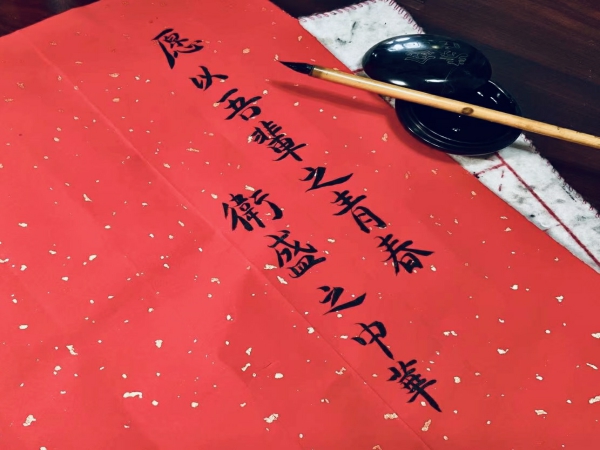 愿以吾輩之青春
衛盛之中華